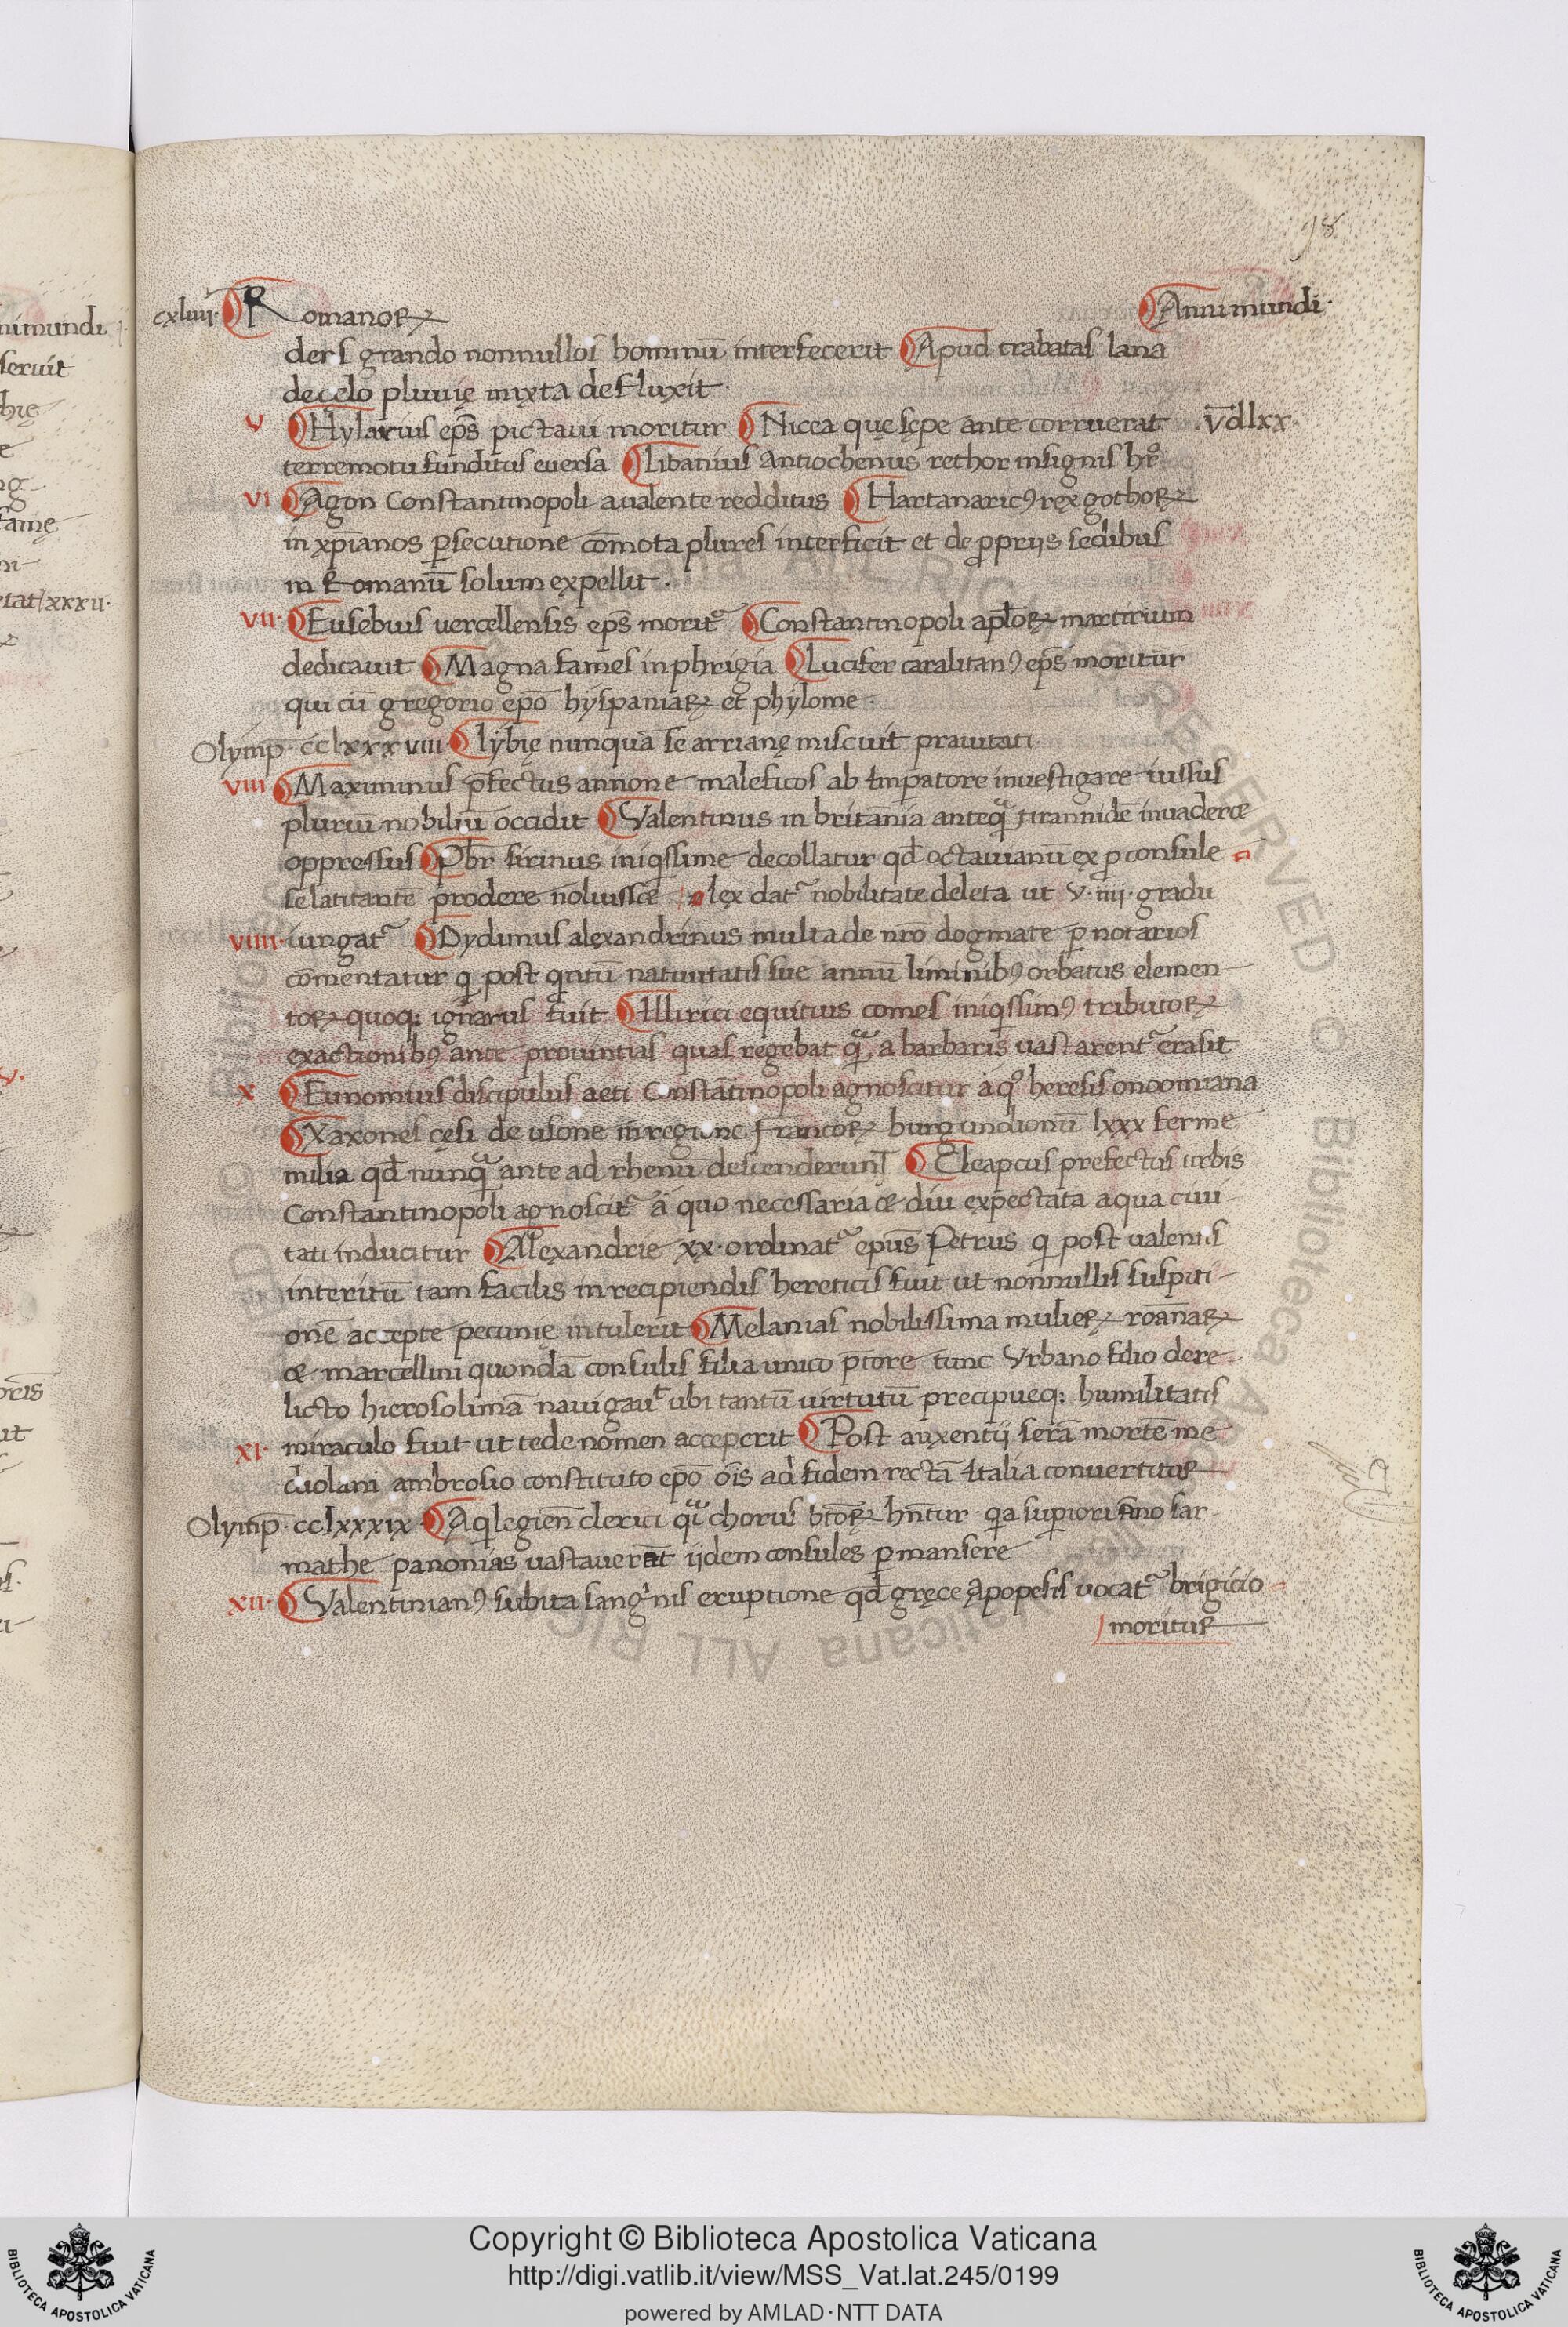 98
cxliiii· Romanoꝝ Anni mundi·
ders grando nonnullos hominū interfecerit Apud trabatas lana
de celo pluuię mixta defluxit·
V Hylarius ep̄s pictaui moritur Nicea quę sępe ante corruerat ·v̄dlxx·
terremotu funditus euersa Libanius Antiochenus rethor insignis hr̄
VI Agon Constantinopoli a ualente redditus Hartanaricꝰ rex gothoꝝ
in xp̄ianos ꝑsecutione com̄ota plures interficit et de ꝓpriis sedibus
in Romanū solum expellit·
VII· Eusebius uercellensis ep̄s morit᷑ Constantinopoli apl̄oꝝ martirium
dedicauit Magna fames in phrigia Lucifer caralitanꝰ ep̄s moritur
qui cū gregorio ep̄o hyspaniaꝝ et phylome·
Olymp̄· cclxxxviii lybię nunquā se arrianę miscuit prauitati·
VIII Maximinus p̄fectus annone maleficos ab Imꝑatore inuestigare iussus
pluriū nobiliū occidit Valentinus in britānia anteqͣ tirannidē inuaderꝫ
oppressus Pbr̄ sirinus iniqissime decollatur qd̄ octauianū ex ꝓconsule
se latitantē prodere noluisset lex dat᷑ nobilitate deleta ut V·iiii· gradu
VIIII· iungat᷑ Dydimus alexandrinus multa de nr̄o dogmate ꝑ notarios
com̄entatur q post qntū natiuitatis sue annū liminibꝰ orbatus elemen-
toꝝ quoqꝫ ignarus fuit Illirici equitius comes iniqissimꝰ tributoꝝ
exactionibꝰ ante prouintias quas regebat qͣ a barbaris uastarent᷑ erasit
X Eunomius discipulus aeti Constātinopoli agnoscitur a qͦ heresis onoomiana
Xaxones cęsi de usone in regione francoꝝ burgundionū lxxx ferme
milia qd̄ nunqͣ ante ad rhenū descenderunt Cleapcus prefectus urbis
Constantinopoli agnoscit᷑ a quo necessaria & diu expectata aqua ciui-
tati inducitur Alexandrie xx· ordinat᷑ ep̄us Petrus q post ualentis
interitū tam facilis in recipiendis hereticis fuit ut nonnullis suspiti-
onē accepte pecunię intulerit Melanias nobilissima mulieꝝ roānaꝝ
& marcellini quondā consulis filia unico p̄tore tunc Vrbano filio dere-
licto hierosolimā nauigaut ubi tantū uirtutū precipueqꝫ humilitatis
XI· miraculo fuit ut tede nomen acceperit Post auxentij serā mortē me-
diolani ambrosio constituto ep̄o oīs ad fidem rectā Italia conuertitur
Olymp̄· cclxxxix· Aqlegien̄ clerici qͣ chorus btōꝝ hn̄tur· qa suꝑiori anno sar-
mathe panonias uastauerāt ijdem consules ꝑmansere
XII· Valentinianꝰ subita sangnis eruptione qd̄ gręce apopesis uocat᷑ brigicio
moritur
Copyright © Biblioteca Apostolica Vaticana
http://digi.vatlib.it/view/MSS_Vat.lat.245/0199
powered by AMLAD·NTT DATA
BIBLIOTECA APOSTOLICA VATICANA
BIBLIOTECA APOSTOLICA VATICANA